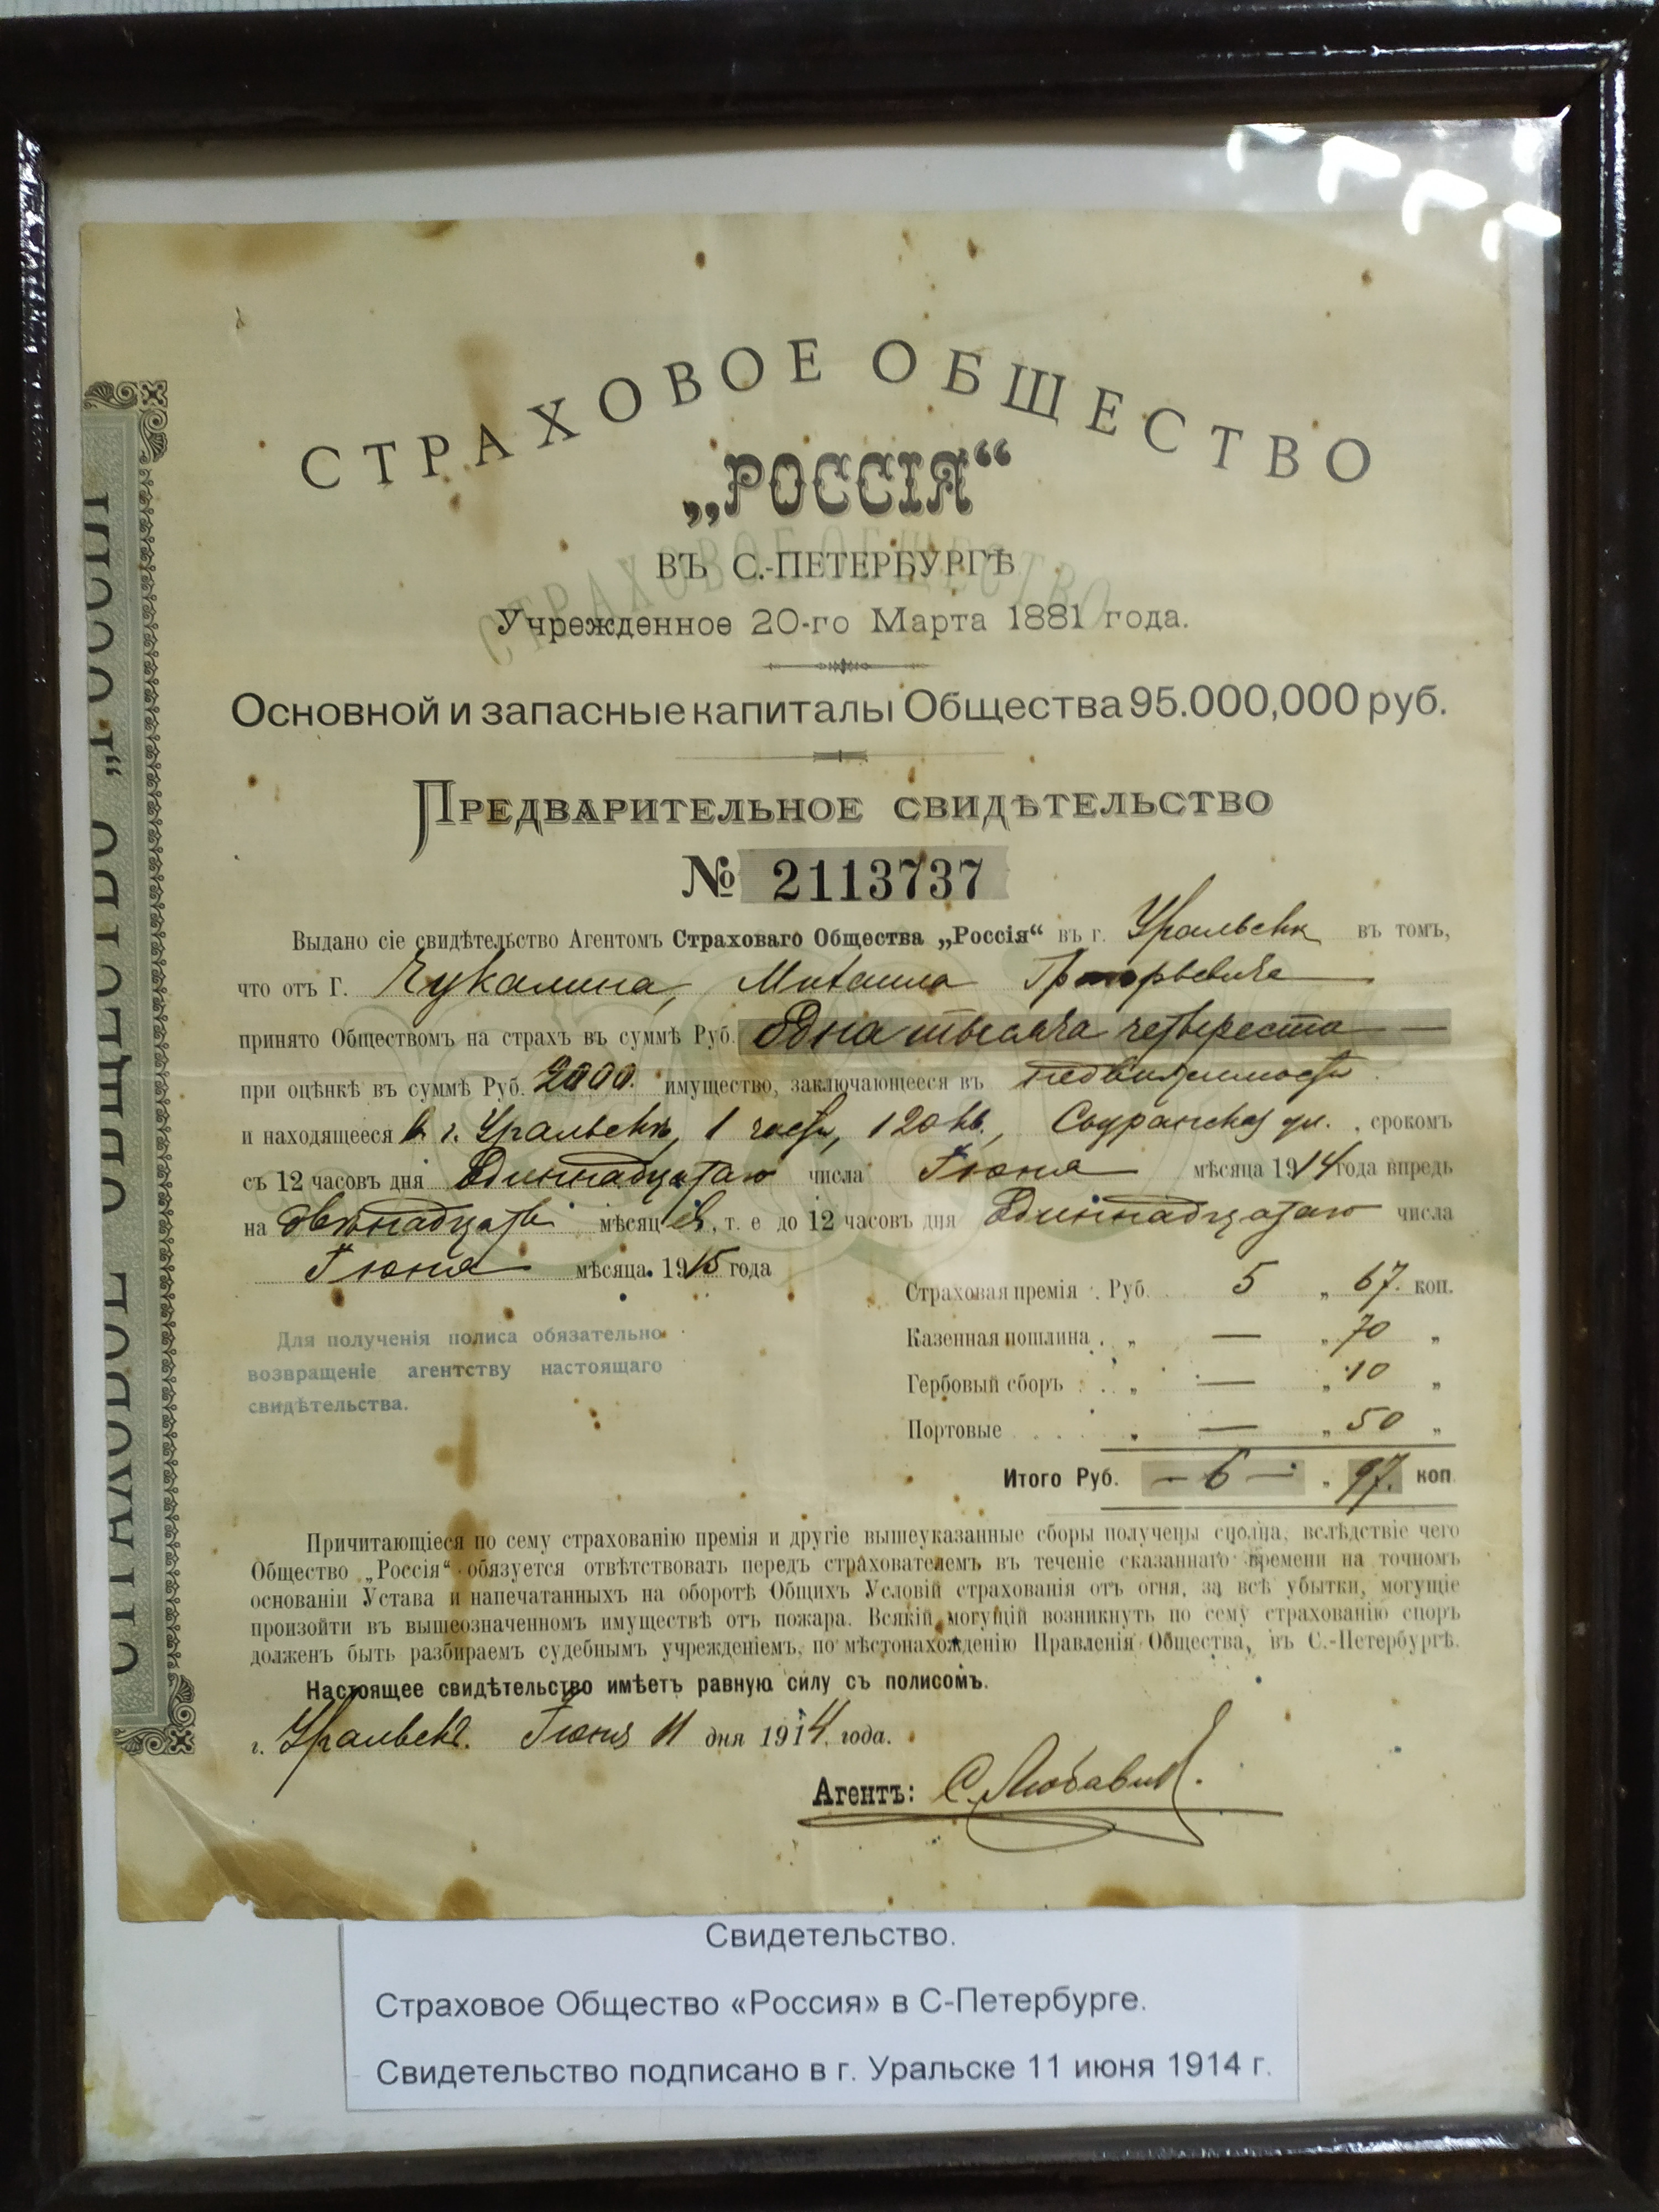 СТРАХОВОЕ ОБЩЕСТВО
„РОССІЯ“
ВЪ С.-ПЕТЕРБУРГѢ
СТРАХОВОЕ ОБЩЕСТВО
Учрежденное 20-го Марта 1881 года.
Основной и запасные капиталы Общества 95.000,000 руб.
Предварительное свидѣтельство
№ 2113737
Выдано сіе свидѣтельство Агентомъ Страховаго Общества „Россія“ въ г. Уральскѣ въ томъ,
что отъ Г. Чукалина, Михаила Григорьевича
принято Обществомъ на страхъ въ суммѣ Руб. Одна тысяча четыреста —
при оцѣнкѣ въ суммѣ Руб. 2000. имущество, заключающееся въ недвижимости.
и находящееся в г. Уральскѣ, 1 части, 120 кв., ул., срокомъ
съ 12 часовъ дня Одиннадцатаго числа Іюня мѣсяца 1914 года впредь
на двѣнадцать мѣсяцевъ, т. е до 12 часовъ дня Одиннадцатаго числа
Іюня мѣсяца 1915 года
Страховая премія . Руб. 5 „ 67. коп.
Казенная пошлина . „ — „ 70 „
Гербовый сборъ . . „ — „ 10 „
Портовые . . . „ — „ 50 „
Итого Руб. — 6 — „ 97. коп
Для полученія полиса обязательно
возвращеніе агентству настоящаго
свидѣтельства.
Причитающіеся по сему страхованію премія и другіе вышеуказанные сборы получены сполна, вслѣдствіе чего
Общество „Россія“ обязуется отвѣтствовать передъ страхователемъ въ теченіе сказаннаго времени на точномъ
основаніи Устава и напечатанныхъ на оборотѣ Общихъ Условій страхованія отъ огня, за всѣ убытки, могущіе
произойти въ вышеозначенномъ имуществѣ отъ пожара. Всякій могущій возникнуть по сему страхованію споръ
долженъ быть разбираемъ судебнымъ учрежденіемъ, по мѣстонахожденію Правленія Общества, въ С.-Петербургѣ.
Настоящее свидѣтельство имѣетъ равную силу съ полисомъ.
г. Уральскъ. Іюня 11 дня 1914 года.
Агентъ: С.
СТРАХОВОЕ ОБЩЕСТВО „РОССІЯ
Свидетельство.
Страховое Общество «Россия» в С-Петербурге.
Свидетельство подписано в г. Уральске 11 июня 1914 г.